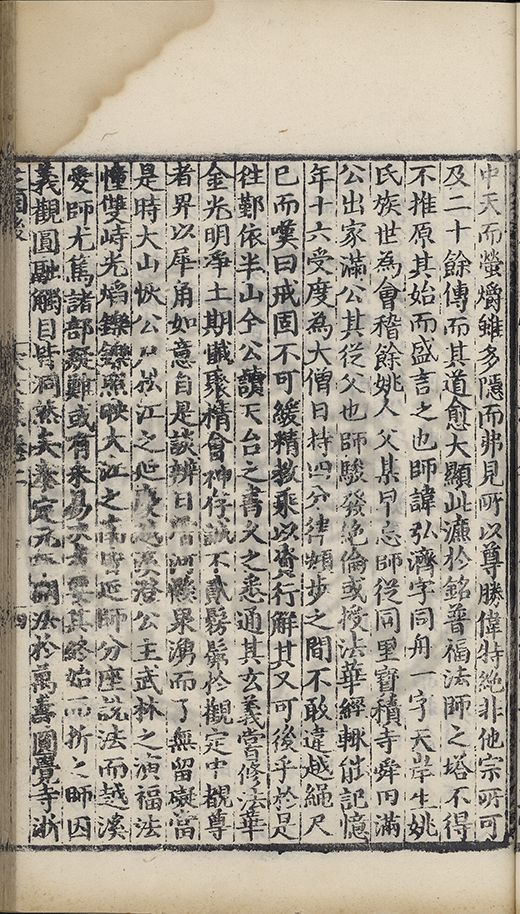 中天而螢爝雖多隱而弗見所以尊勝偉特絶非他宗所可
及二十餘傳而其道愈大顯此濂於銘普福法師之塔不得
不推原其始而盛言之也師諱弘濟字同舟一字天岸生姚
氏族世為會稽餘姚人父某甲師從同里寳積寺舜田滿
公出家滿公其從父也師駿發絶倫或授法華經輒能記憶
年十六受度為大僧日持四分律頻步之間不敢違越繩尺
已而嘆曰戒固不可緩精教乘以資行解其又可後乎於是
往鄞依半山全公讀天台之書久之悉通其玄義嘗修法華
金光明淨土期懺聚精會神存誠不貳髣髴於觀定中覩尊
者畀以犀角如意自是談辨日增河懸泉湧而了無留礙當
是時大山恢公江之越溪澄公主武林之演福法
幢雙峙光熖鑠鑠照映大江之南延師分座說法而越溪
愛師尤篤諸部疑難或有未易其終始而折之師因
義觀圓融觸目皆洞然矣泰定元法於萬壽圓覺寺浙